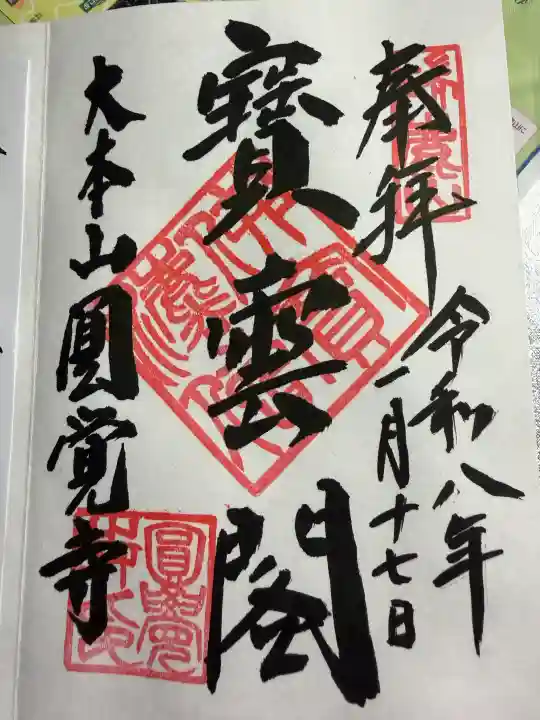 奉拝
令和八年
一月十七日
寶雲閣
大本山圓覚寺